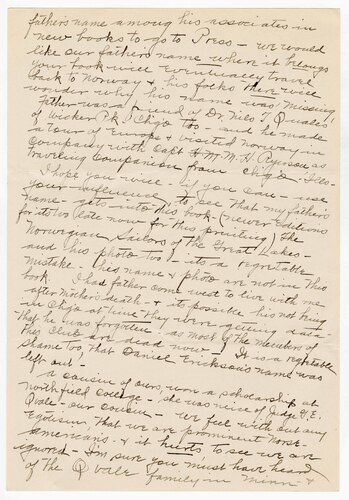 father's name among his associates in
new books to go to Press - we would
like our father's name where it belongs
your book will eventually travel
back to Norway & his folks there will
wonder why his name was missing!
Father was a friend of Dr. Niles T. Quales
of Wicker Pk. Chg'o too - and he made
a tour of Europe & visited Norway in
Company with Capt & M M. H. Ryerson as
Traveling Companion from Chg'o - Ills -
I hope you will - if you can - use
your influence, to see that my father's
name - gets into his book - (newer editions
for its too late now for this printing) the
Norwegian Sailors of the Great Lakes -
and his photo too - its a regretable
mistake - his name & photo are not in this
book. I had father come west to live with me
after Mother's death - & its possible his not being
in Chg'o at time they were getting data -
that he was forgotten - as most of the members of
this Club are dead now! It is a regretable
shame too, that Daniel Erickson's name was
left out!
a cousin of ours, won a scholarship at
northfield College - she was niece of Judge G. E.
Qvale - our cousin - we feel with out any
Egotism, that we are prominent norse -
americans - & it hurts to see we are
ignored - I'm sure you must have heard
of the Qvale family in Minn - &